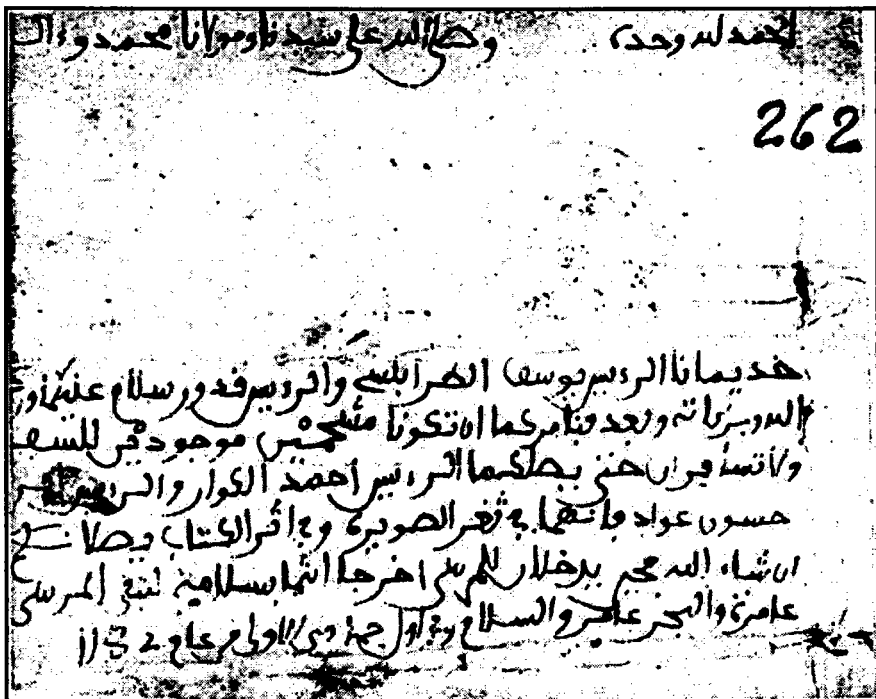 الحمد لله وحده وصلى الله على سيدنا ومولانا محمد وءاله
262
خديمانا الرءيس يوسف الطرابلسي والرءيس قدور سلام عليكما ور
الله وبركاته وبعد فنامركما ان تكونا موجودين للسفر
ولا تسافران حتى يصلكما الرءيس احمد الكوار والرءيس
حسون عواد فإنهما في ثغر الصويرة وفي اثر الكتاب يصلان
ان شاء الله فحين يدخلان للمرسى اخرجا انتما بسلامية لتبقى المرسى
عامرة والبحر عامر والسلام في اول جمادى الاولى من عام